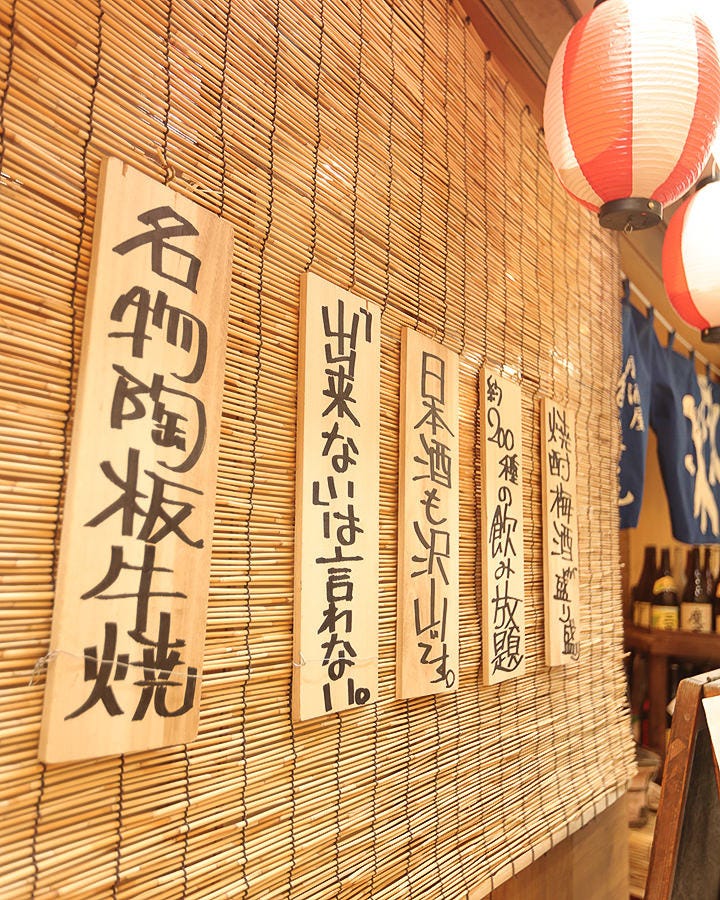 焼酎梅酒〝盛り盛〟
約200種の飲み放題
日本酒も沢山です。
〝出来ない〟は言わない。
名物陶板牛焼